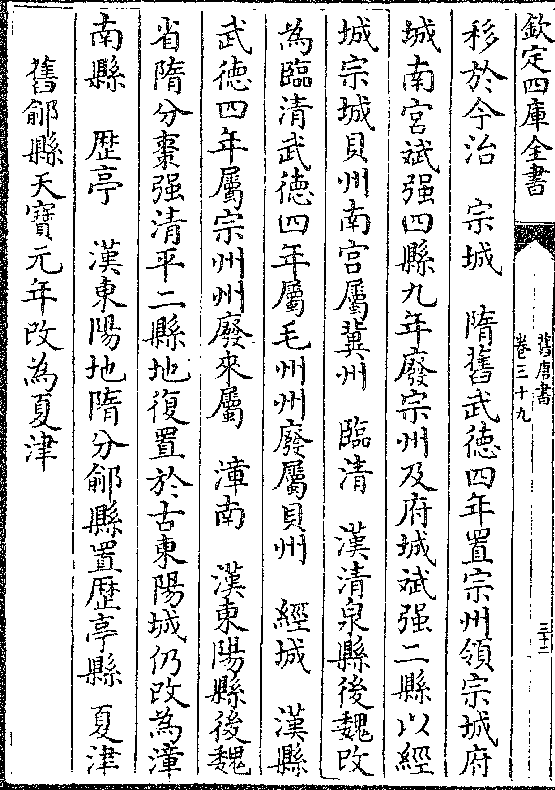 欽定四庫全書
舊唐書
卷三十九
三十二
移於今治　宗城　隋舊武德四年置宗州領宗城府
城南宮斌强四縣九年廢宗州及府城斌强二縣以經
城宗城貝州南宮屬冀州　臨清　漢清泉縣後魏改
為臨清武德四年屬毛州州廢屬貝州　經城　漢縣
武德四年屬宗州州廢來屬　漳南　漢東陽縣後魏
省隋分棗强清平二縣地復置於古東陽城仍改為漳
南縣　歴亭　漢東陽地隋分鄃縣置歴亭縣　夏津
舊鄃縣天寶元年改為夏津